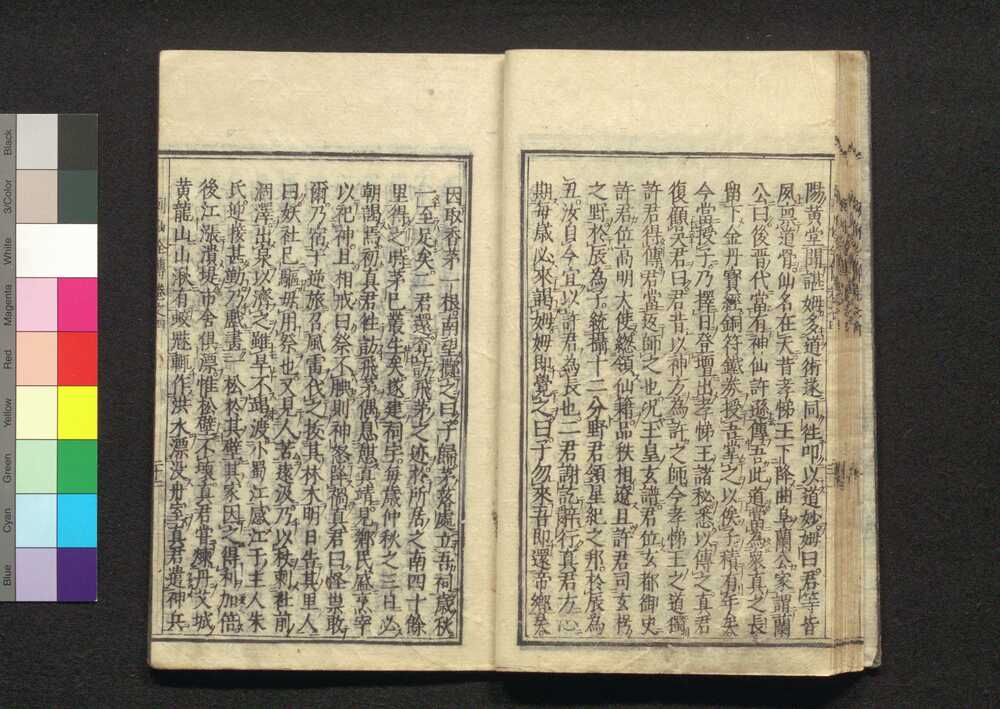 陽黃堂聞諶姆多道術遂同往叩以道妙姆曰君等皆
夙禀道骨仙名在天昔孝悌王下降曲阜蘭公家謂蘭
公曰後晋代當有神仙許遜傳吾此道當為衆真之長
留下金丹寶經銅符鐵券授吾掌之以俟子積有年矣
今當授子乃擇日登壇出孝悌王諸秘悉以傳之真君
復顧吳君曰君昔以神方為許之師今孝悌王之道獨
許君得傳君當返師之也況王皇玄譜君位玄都御史
許君位高明大使總領仙籍品秩相遼且許君司玄枵
之野於辰為子統攝十二分野君領星紀之邦於辰為
丑汝自今宜以許君為長也二君謝訖辭行真君方心
期每歲必來謁姆姆即覺之曰子勿來吾即還帝鄉矣
因取香茅一根南望擲之曰子歸茅落處立吾祠歲秋
一至足矣二君還訪飛茅之迹於所居之南四十餘
里得之時茅已叢生矣遂建祠宇每歲仲秋之三日必
朝謁焉初真君往訪飛茅偶息憩真靖見鄉民盛烹宰
以祀神且相戒曰祭不腆則神怒降禍真君曰怪祟敢
爾乃宿于逆旅召風雷伐之拔其林木明日告其里人
曰妖社已驅毋用祭也又見人苦遠汲乃以杖刺社前
涸澤出泉以濟之雖旱不竭渡小蜀江感江干主人朱
氏迎接甚勤乃戲畫一松於其壁其家因之得利加倍
後江漲潰堤市舍俱漂惟松壁不壞真君嘗煉丹艾城
黃龍山山湫有蛟魅輒作洪水漂没舟室真君遣神兵
Black
3/Color
White
Magenta
Red
Yellow
Green
Cyan
Blue